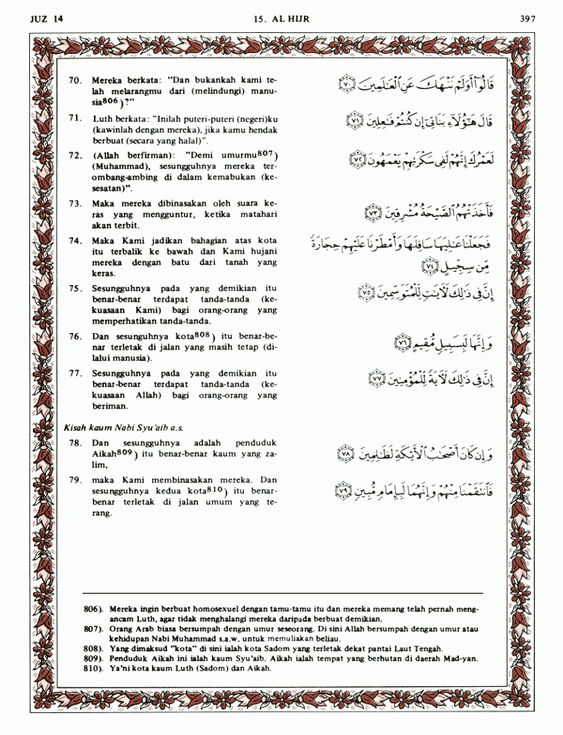 JUZ 14 15. AL HIJR 397
70. Mereka berkata: "Dan bukankah kami te-
lah melarangmu dari (melindungi) manu-
sia806)?"
قَالُوٓا۟ أَوَلَمْ نَنْهَكَ عَنِ ٱلْعَٰلَمِينَ ﴿٧٠﴾
71. Luth berkata: "Inilah puteri-puteri (negeri)ku
(kawinlah dengan mereka), jika kamu hendak
berbuat (secara yang halal)".
قَالَ هَٰٓؤُلَآءِ بَنَاتِىٓ إِن كُنتُمْ فَٰعِلِينَ ﴿٧١﴾
72. (Allah berfirman): "Demi umurmu807)
(Muhammad), sesungguhnya mereka ter-
ombang-ambing di dalam kemabukan (ke-
sesatan)".
لَعَمْرُكَ إِنَّهُمْ لَفِى سَكْرَتِهِمْ يَعْمَهُونَ ﴿٧٢﴾
73. Maka mereka dibinasakan oleh suara ke-
ras yang mengguntur, ketika matahari
akan terbit.
فَأَخَذَتْهُمُ ٱلصَّيْحَةُ مُشْرِقِينَ ﴿٧٣﴾
74. Maka Kami jadikan bahagian atas kota
itu terbalik ke bawah dan Kami hujani
mereka dengan batu dari tanah yang
keras.
فَجَعَلْنَا عَٰلِيَهَا سَافِلَهَا وَأَمْطَرْنَا عَلَيْهِمْ حِجَارَةً
مِّن سِجِّيلٍ ﴿٧٤﴾
75. Sesungguhnya pada yang demikian itu
benar-benar terdapat tanda-tanda (ke-
kuasaan Kami) bagi orang-orang yang
memperhatikan tanda-tanda.
إِنَّ فِى ذَٰلِكَ لَءَايَٰتٍ لِّلْمُتَوَسِّمِينَ ﴿٧٥﴾
76. Dan sesunguhnya kota808) itu benar-be-
nar terletak di jalan yang masih tetap (di-
lalui manusia).
وَإِنَّهَا لَبِسَبِيلٍ مُّقِيمٍ ﴿٧٦﴾
77. Sesungguhnya pada yang demikian itu
benar-benar terdapat tanda-tanda (ke-
kuasaan Allah) bagi orang-orang yang
beriman.
إِنَّ فِى ذَٰلِكَ لَءَايَةً لِّلْمُؤْمِنِينَ ﴿٧٧﴾
Kisah kaum Nabi Syu'aib a.s.
78. Dan sesungguhnya adalah penduduk
Aikah809) itu benar-benar kaum yang za-
lim,
وَإِن كَانَ أَصْحَٰبُ ٱلْأَيْكَةِ لَظَٰلِمِينَ ﴿٧٨﴾
79. maka Kami membinasakan mereka. Dan
sesungguhnya kedua kota810) itu benar-
benar terletak di jalan umum yang te-
rang.
فَٱنتَقَمْنَا مِنْهُمْ وَإِنَّهُمَا لَبِإِمَامٍ مُّبِينٍ ﴿٧٩﴾
806). Mereka ingin berbuat homosexuel dengan tamu-tamu itu dan mereka memang telah pernah meng-
ancam Luth, agar tidak menghalangi mereka daripada berbuat demikian.
807). Orang Arab biasa bersumpah dengan umur seseorang. Di sini Allah bersumpah dengan umur atau
kehidupan Nabi Muhammad s.a.w. untuk memuliakan beliau.
808). Yang dimaksud "kota" di sini ialah kota Sadom yang terletak dekat pantai Laut Tengah.
809). Penduduk Aikah ini ialah kaum Syu'aib. Aikah ialah tempat yang berhutan di daerah Mad-yan.
810). Ya'ni kota kaum Luth (Sadom) dan Aikah.